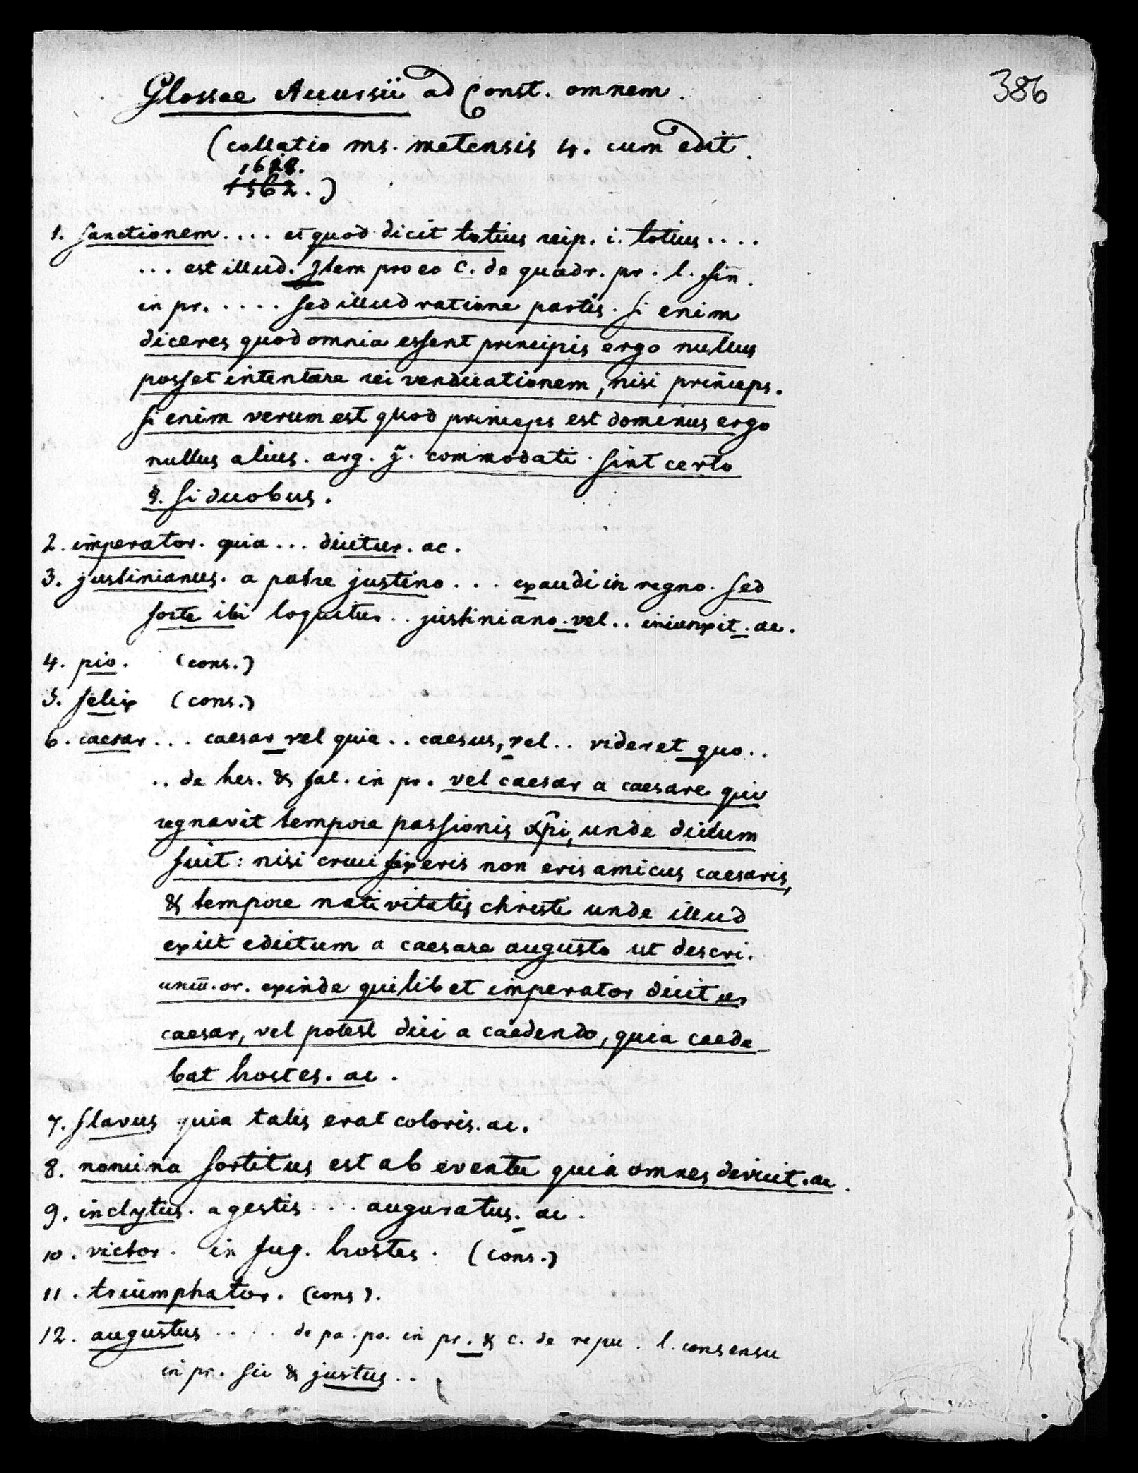 386
Glossae Accursii ad Const. omnem.
(collatio ms. metensis 4. cum edit.
1688.
1562.)
1. sanctionem .... et quod dicit totius reip. i. totius ....
... est illud. Item pro eo C. de quadr. pr. l. fin.
in pr. ..... sed illud ratione partis. si enim
diceres quod omnia essent principis ergo nullus
posset intentare rei vendicationem, nisi princeps.
si enim verum est quod princeps est dominus ergo
nullus alius. arg. j̃. commodati. sint certo
§. si duobus.
2. imperator. quia ... dicitur. ac.
3. justinianus. a patre justino ... exaudi in regno. sed
forte ibi loquitur .. justiniano. vel .. iniunxit. ac.
4. pio. (cons.)
5. felix (cons.)
6. caesar ... caesar vel quia .. caesus, vel .. videret quo ..
.. de her. & fal. in pr. vel caesar a caesare qui
regnavit tempore passionis xp̃i, unde dictum
fuit: nisi crucifixeris non eris amicus caesaris,
& tempore nativitatis christi unde illud
exiit edictum a caesare augusto ut descri.
univ. or. exinde quilibet imperator dicitur
caesar, vel potest dici a caedendo, quia caede
bat hostes. ac.
7. flavus quia talis erat coloris. ac.
8. nomina sortitus est ab eventu quia omnes devicit. ac.
9. inclytus. a gestis .... auguratus. ac.
10. victor. in fug. hostes. (cons.)
11. triumphator. (cons).
12. augustus .... de pa. po. in pr. & c. de repu. l. consensu
in pr. sic & justus ..